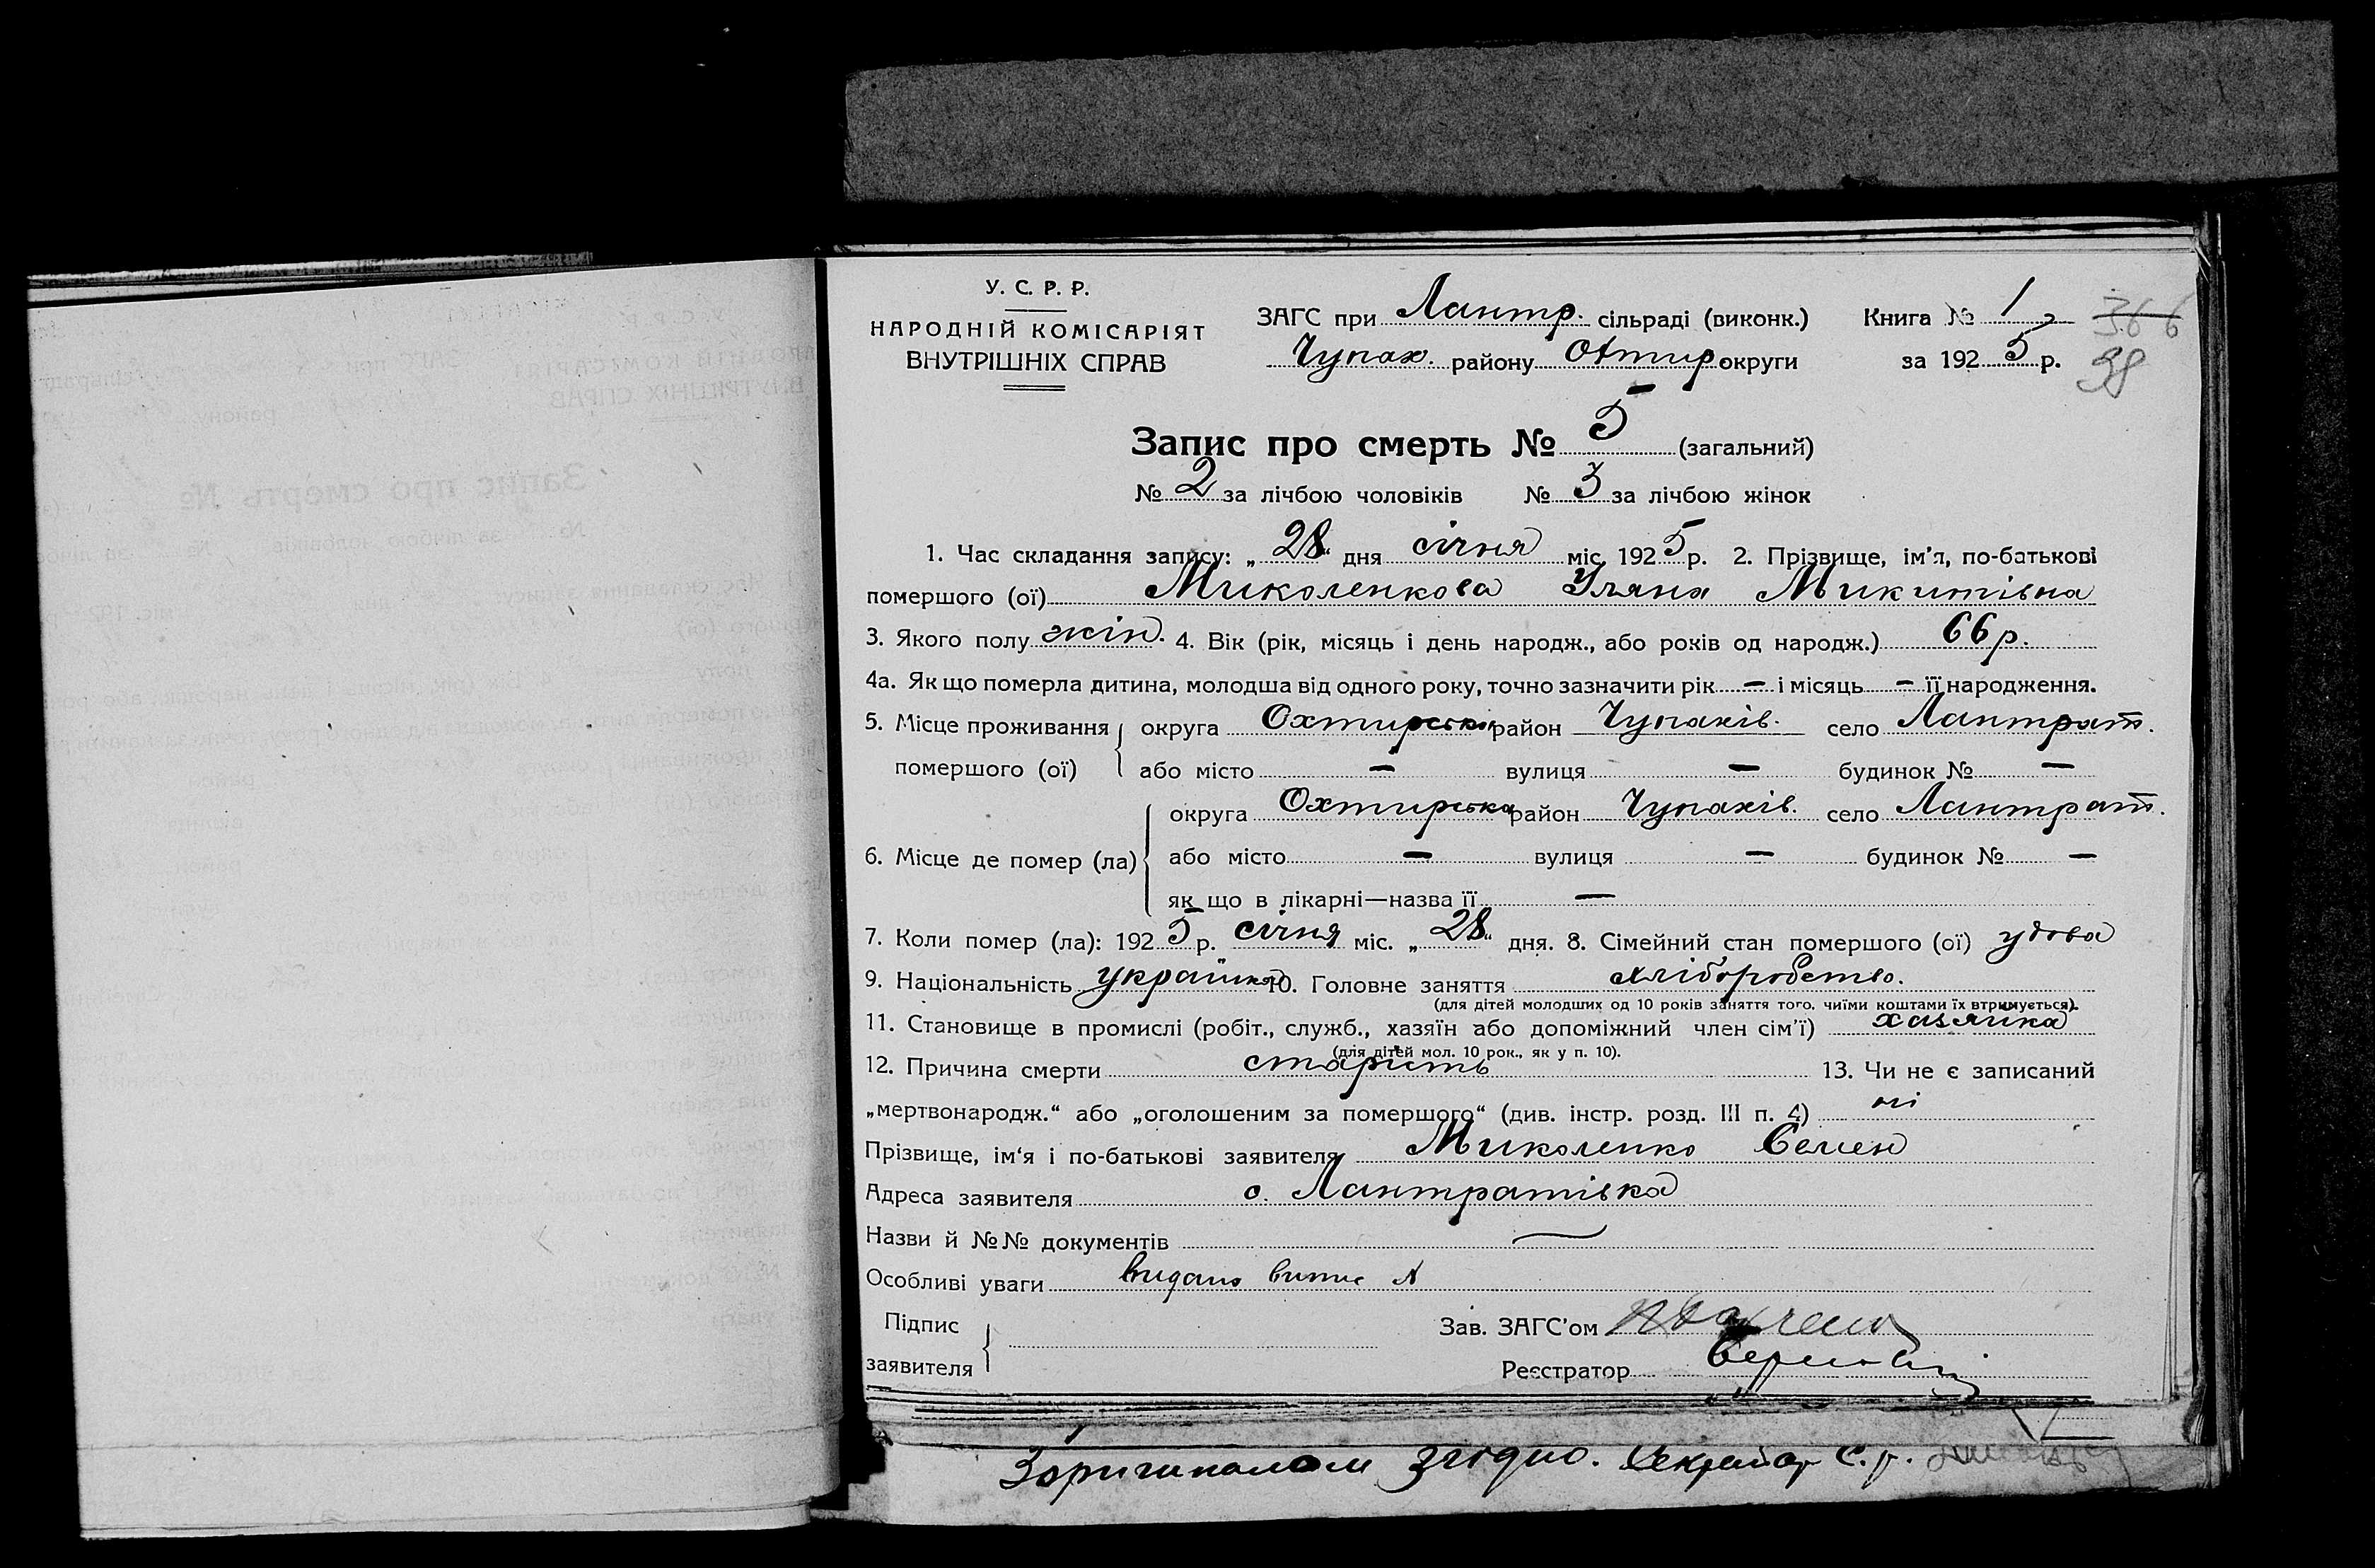 У. С. Р. Р.
НАРОДНІЙ КОМІСАРІЯТ
ВНУТРІШНІХ СПРАВ
ЗАГС при Лантр. сільраді (виконк.) Книга № 1
Чупах. району Охтир округи за 1925 р.
366
38
Запис про смерть № 5 (загальний)
№ 2 за лічбою чоловіків № 3 за лічбою жінок
1. Час складання запису: „28“ дня січня міс. 1925 р. 2. Прізвище, ім’я, по-батькові
помершого (ої) Миколенкова Уляна Микитівна
3. Якого полу жін. 4. Вік (рік, місяць і день народж., або років од народж.) 66 р.
4а. Як що померла дитина, молодша від одного року, точно зазначити рік — і місяць — її народження.
5. Місце проживання помершого (ої) округа Охтирська район Чупахів. село Лантрат.
або місто — вулиця — будинок № —
6. Місце де помер (ла) округа Охтирська район Чупахів. село Лантрат.
або місто — вулиця — будинок № —
як що в лікарні—назва її —
7. Коли помер (ла): 1925 р. січня міс. „28“ дня. 8. Сімейний стан помершого (ої) удова
9. Національність українка 10. Головне заняття хліборобство.
(для дітей молодших од 10 років заняття того, чиїми коштами їх втримується).
11. Становище в промислі (робіт., служб., хазяїн або допоміжний член сім’ї) хазяйка
(для дітей мол. 10 рок., як у п. 10).
12. Причина смерти старість 13. Чи не є записаний
„мертвонародж.“ або „оголошеним за помершого“ (див. інстр. розд. III п. 4) ні
Прізвище, ім‘я і по-батькові заявителя Миколенко Семен
Адреса заявителя с. Лантратівка
Назви й №№ документів —
Особливі уваги видано випис
Підпис заявителя
Зав. ЗАГС’ом
Реєстратор
З оригиналом згідно. Секретар С. р.